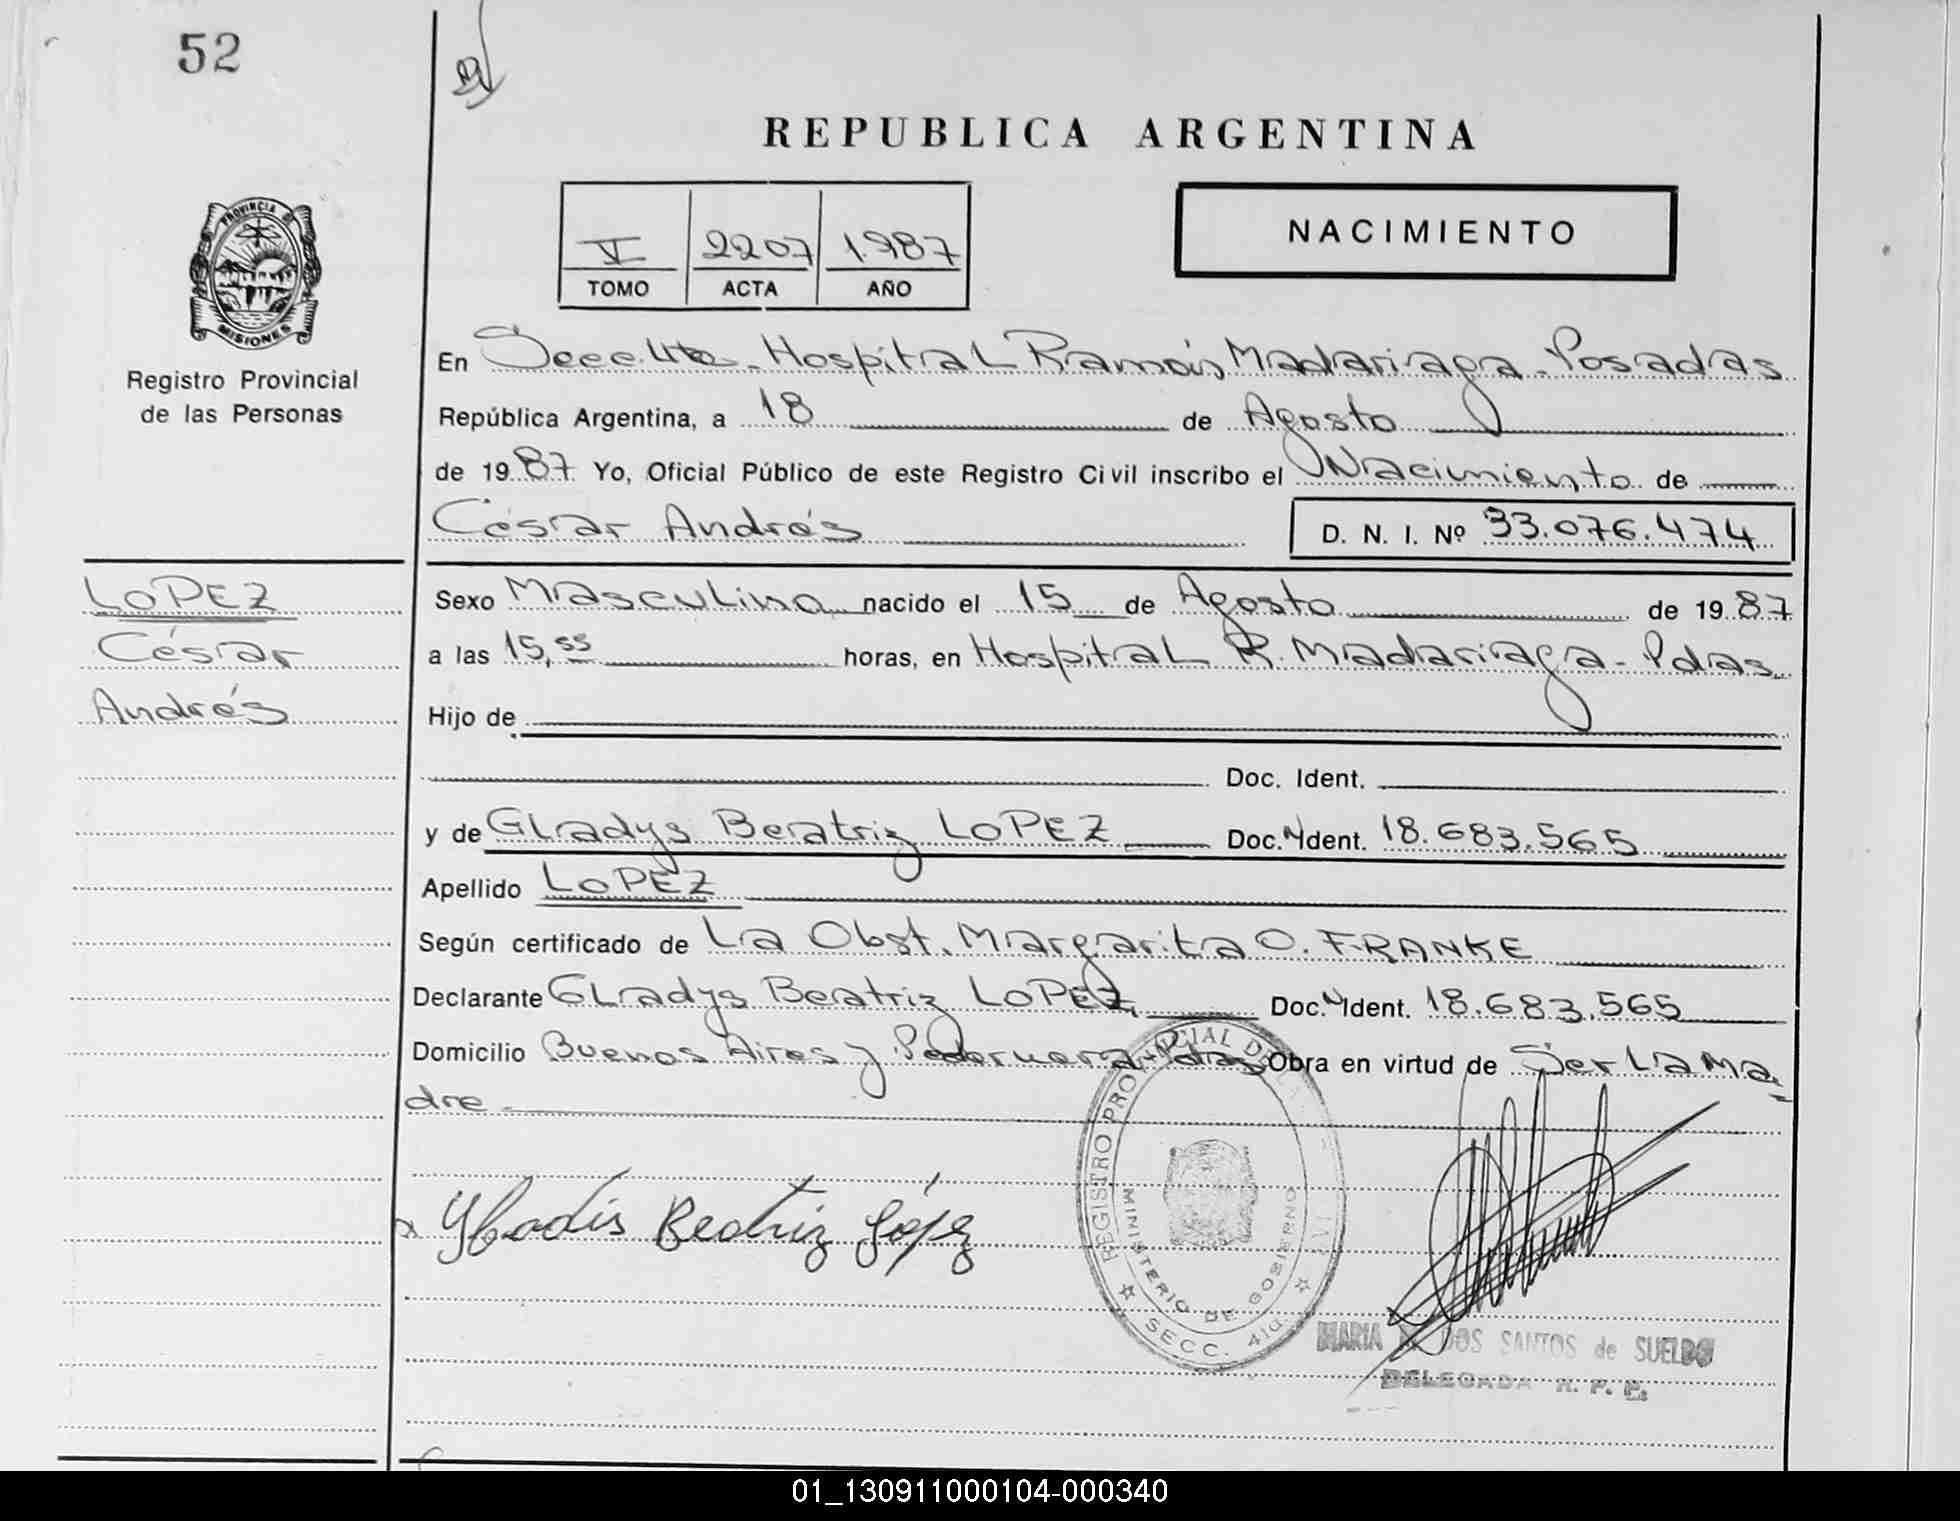 52
REPUBLICA ARGENTINA
PROVINCIA DE
MISIONES
Registro Provincial
de las Personas
V 2207 1.987
TOMO ACTA AÑO
NACIMIENTO
En Secc. 4ta. Hospital Ramón Madariaga - Posadas
República Argentina, a 18 de Agosto
de 1987 Yo, Oficial Público de este Registro Civil inscribo el Nacimiento de
César Andrés D. N. I. Nº 33.076.474
LOPEZ
César
Andrés
Sexo Masculino nacido el 15 de Agosto de 1987
a las 15,55 horas, en Hospital R. Madariaga - Pdas.
Hijo de
Doc. Ident.
y de Gladys Beatriz LOPEZ Doc. N Ident. 18.683.565
Apellido LOPEZ
Según certificado de La Obst. Margarita O. FRANKE
Declarante Gladys Beatriz LOPEZ, Doc. N Ident. 18.683.565
Domicilio Buenos Aires y Pedernera - Pdas Obra en virtud de Ser La Ma-
dre
Gladis Beatriz López
REGISTRO PROVINCIAL DE LA
MINISTERIO DE GOBIERNO
SECC. 4ta.
MARIA DOS SANTOS de SUELDO
DELEGADA R. P. P.
01_130911000104-000340